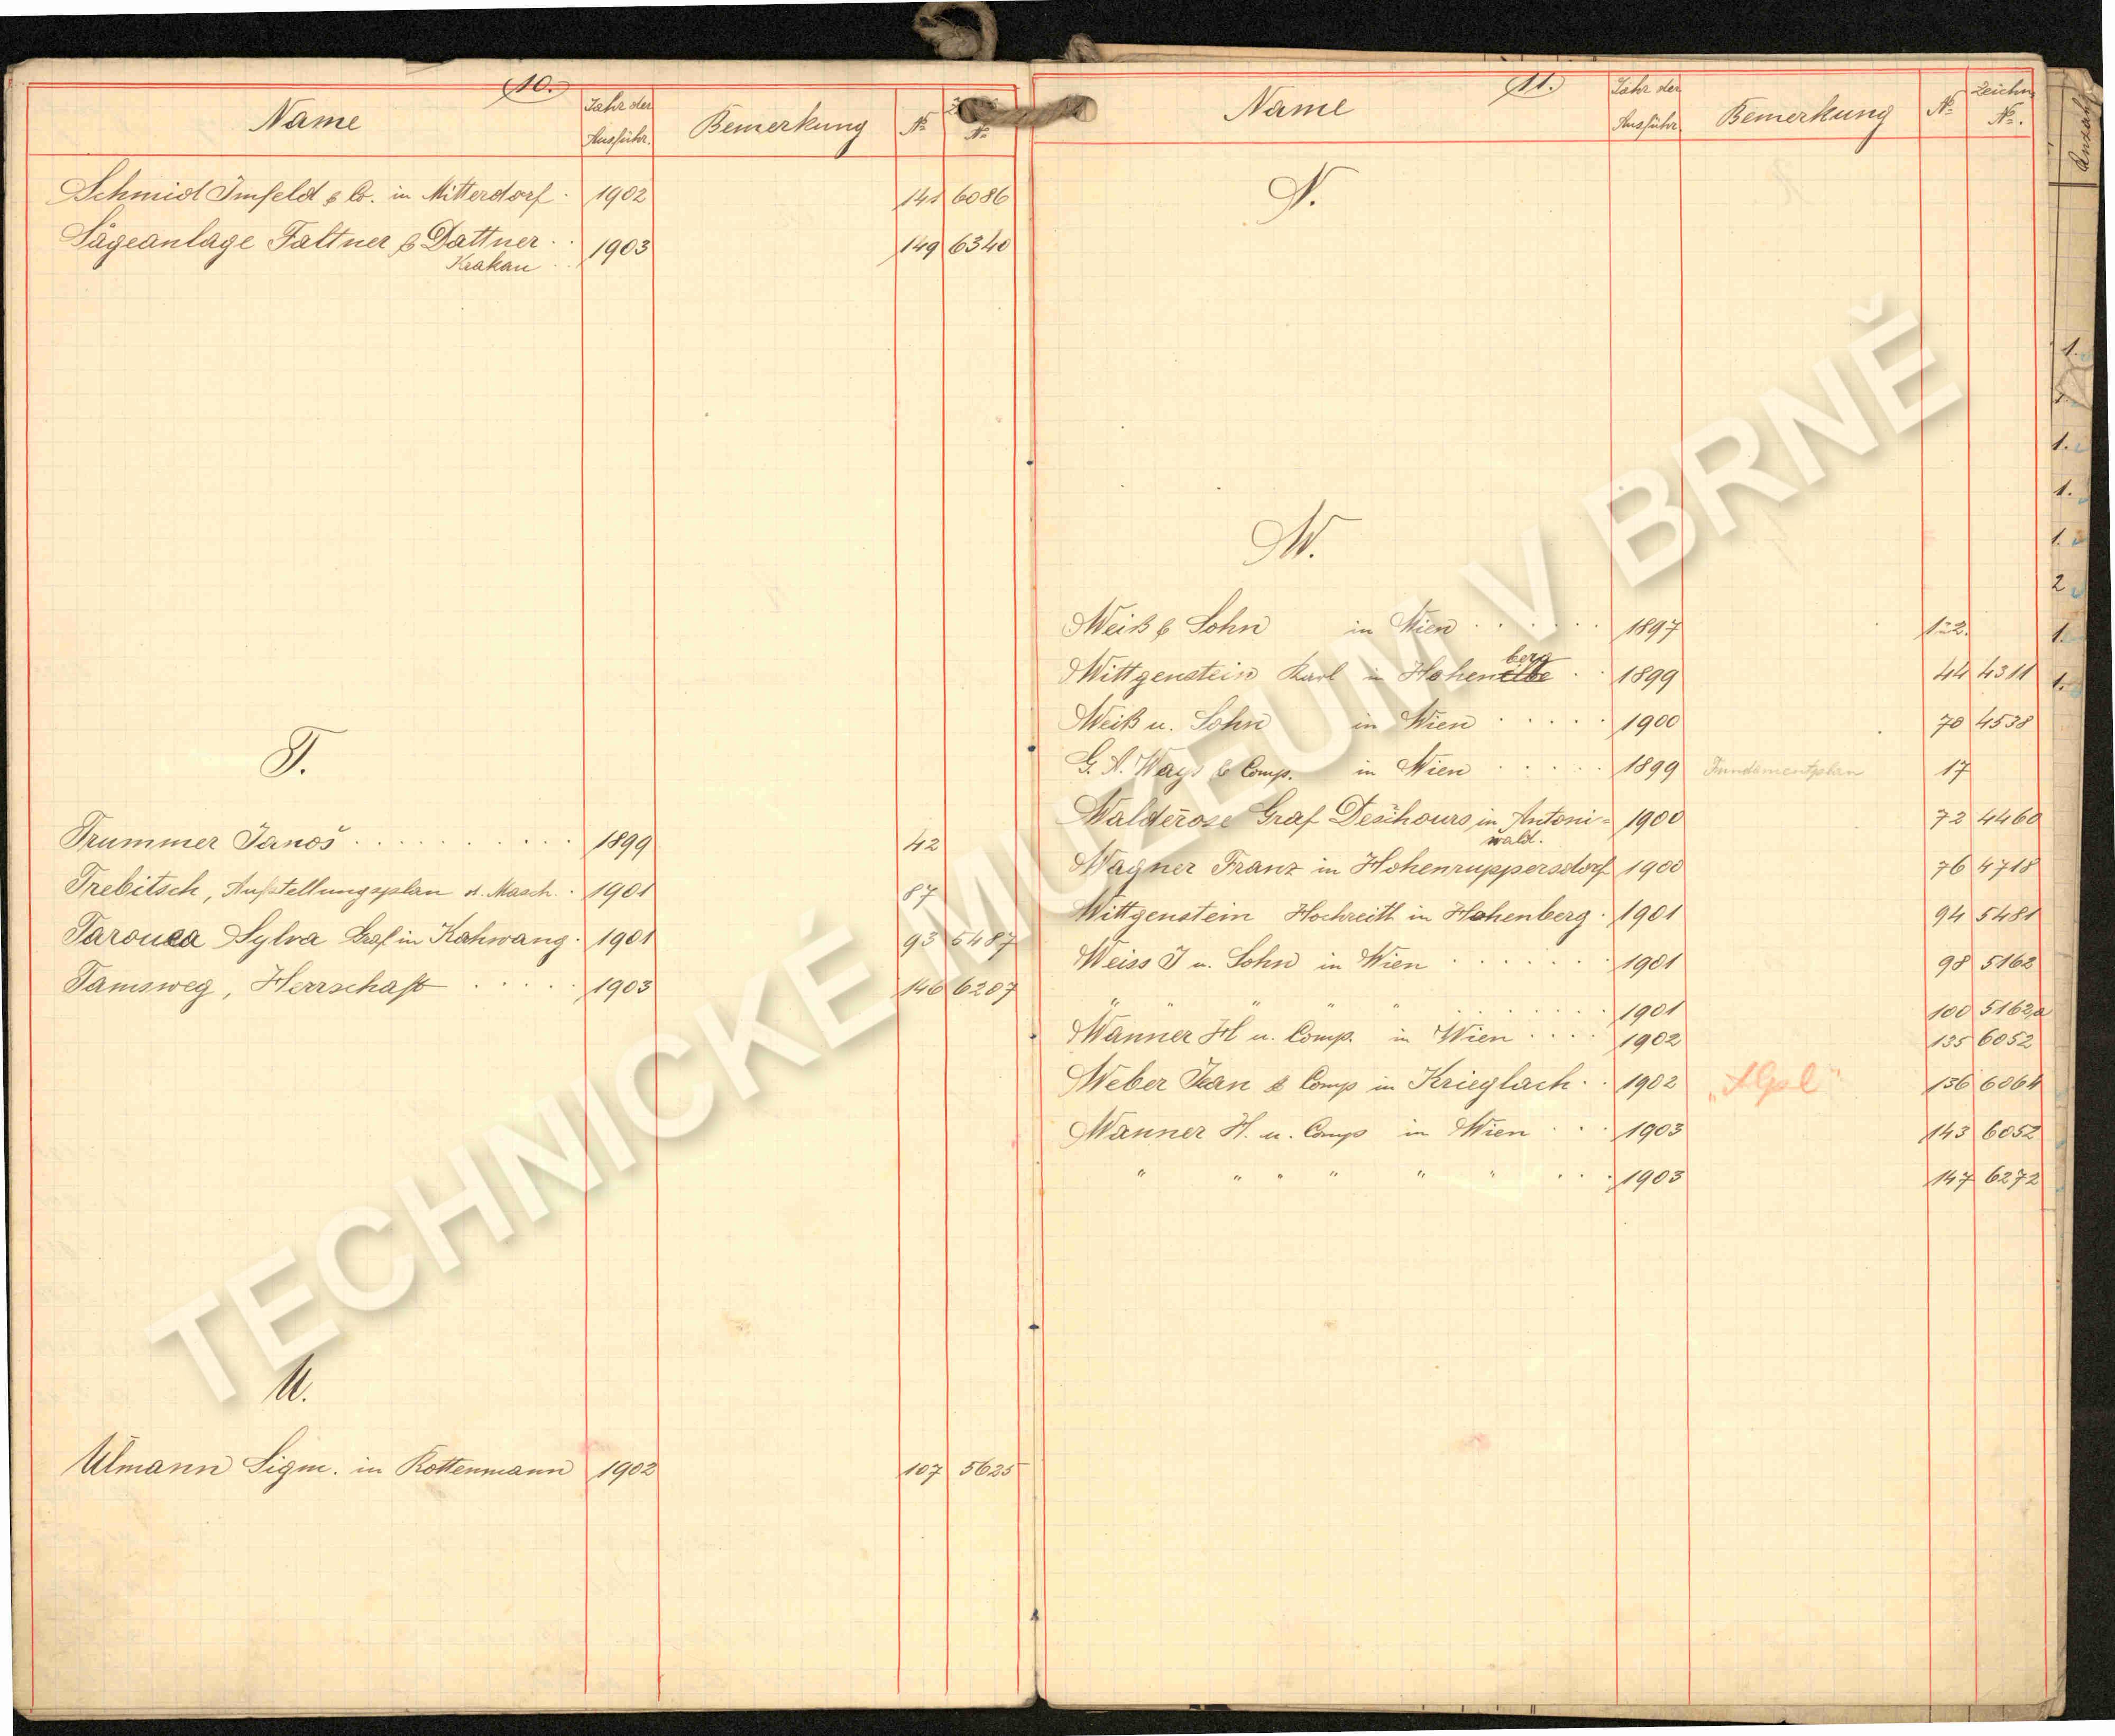 10.
Name
Jahr der
Ausführ.
Bemerkung
№
№
Schmid Imfeld & Co. in Mitterdorf . 1902 141 6086
Sägeanlage Faltner & Dattner . . 1903 149 6340
Krakau . .
T.
Trummer Janoš . . . . . . . . . 1899 42
Trebitsch, Aufstellungsplan d. Masch. . 1901 87
Tarouca Sylva Graf in Kahwang . 1901 93 5487
Tamsweg, Herrschaft . . . . . 1903 146 6207
U.
Ulmann Sigm. in Rottenmann 1902 107 5625
11.
Name
Jahr der
Ausführ.
Bemerkung
№
Zeichn.
№.
Anzahl
V.
W.
Weiß & Sohn in Wien . . . . . . 1897 1u2.
berg
Wittgenstein Karl in Hohenelbe . . 1899 44 4311
Weiß u. Sohn in Wien . . . . . 1900 70 4538
G. A. Ways & Comp. in Wien . . . . . 1899 Fundamentplan 17
Walderose Graf Deschours in Antoni= 1900 72 4460
wald.
Wagner Franz in Hohenruppersdorf 1900 76 4718
Wittgenstein Hochreith in Hohenberg . 1901 94 5481
Weiss J u. Sohn in Wien . . . . . . . 1901 98 5162
" " " " " . . . . . . 1901 100 5162a
Wanner H u. Comp. in Wien . . . . 1902 135 6052
Weber Jean & Comp in Krieglach . . 1902 136 6064
Wanner H. u. Comp in Wien . . . 1903 143 6052
" " " " " " . . . 1903 147 6272
1.
1.
1.
1.
2
1.
1.
TECHNICKÉ MUZEUM V BRNĚ